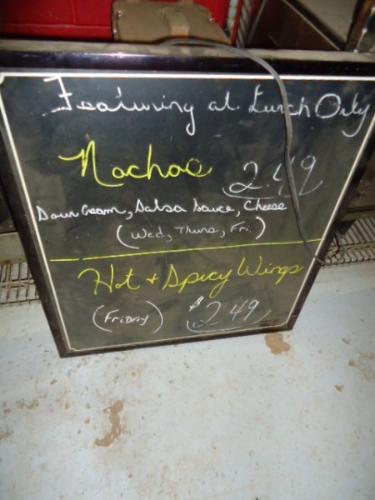 Featuring at Lunch Only
Nachos 2.49
Sour Cream, Salsa Sauce, Cheese
(Wed, Thurs, Fri.)
Hot + Spicy Wings
(Friday) $2.49